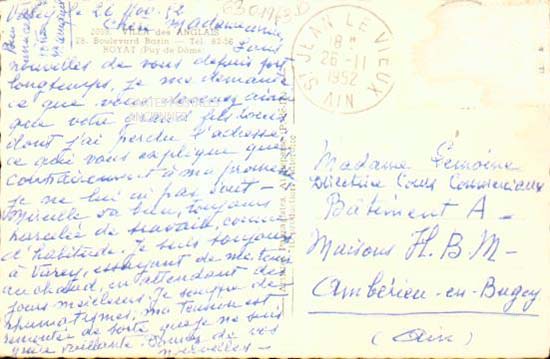 Varey le 26 Nov. 52
Chère Madame,
2019. VILLA des ANGLAIS
28, Boulevard Bazin — Tél. 82-56
ROYAT (Puy de Dôme)
Sans
nouvelles de vous depuis fort
longtemps, je me demande
ce que vous devenez ainsi
que votre grand fils Louis
dont j'ai perdu l'adresse
ce qui vous explique que
contrairement à ma promesse
je ne lui ai pas écrit —
va bien, toujours
harcelée de travail, comme
d'habitude. Je suis toujours
à Varey, essayant de me tenir
au chaud, en attendant des
jours meilleurs. Je souffre de
rhumatismes, ma tension est
remontée de sorte que je ne suis
guère vaillante. Donnez de vos
nouvelles —
ST JEAN LE VIEUX
18H
26-11
1952
AIN
Madame Lémoine
Directrice Cours Commerciaux
Bâtiment A —
Maisons H.B.M —
Ambérieu-en-Bugey
(Ain)